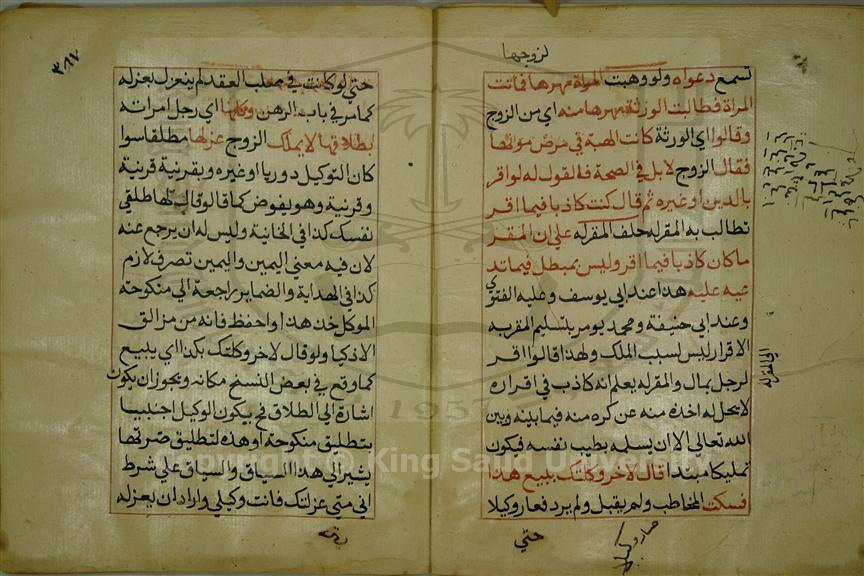 لزوجها
تسمع دعواه ولو وهبت المراة مهرها فماتت
المراة فطالبت الورثة مهرها منه اي من الزوج
وقالوا اي الورثة كانت الهبة في مرض موتها
فقال الزوج لا بل في الصحة فالقول له لو اقر
بالدين او غيره ثم قال كنت كاذبا فيما اقر
تطالب به المقر له حلف المقر له على ان المقر
ما كان كاذبا فيما اقر وليس بمبطل فيما تد
عيه عليه هذا عند ابي يوسف وعليه الفتوي
وعند ابي حنيفة ومحمد يومر بتسليم المقر به
الي المقر له
الاقرار ليس لسبب الملك ولهذا قالوا اقر
لرجل بمال والمقر له يعلم انه كاذب في اقراره
لا يحل له اخذه منه عن كره منه فيما بينه وبين
الله تعالي الا ان يسلمه بطيب نفسه فيكون
تمليكا مبتدا قال لاخر وكلتك ببيع هذا
فسكت المخاطب ولم يقبل ولم يرد فعا روكيلا
حتي
٣٨٧
حتي لو كانت في صلب العقد لم ينعزل بعزله
كما مر في باب الرهن وكلها اي رجل امراته
بطلاقها لا يملك الزوج عزلها مطلقا سوا
كان التوكيل دوريا او غيره وبقرينة قرينة
وقرنية وهو يفوض كما قالو قال لها طلقي
نفسك كذا في الخانية وليس له ان يرجع عنه
لان فيه معني اليمين واليمين تصرف لازم
كذا في الهداية والضماير راجعة الي منكوحته
الموكل خذ هذا واحفظ فانه من مزالق
الاذكيا ولو قال لاخر وكلتك بكذا اي ببيع
كما وقع في بعض النسخ مكانه ويجوز ان يكون
اشارة الي الطلاق فح يكون الوكيل اجنبيا
بتطليق منكوحته او هذه لتطليق ضرتها
يشير الي هذا السياق والسياق علي شرط
اني متي عزلتك فانت وكيلي واراد ان يعزله
Copyright © King Saud University
1957